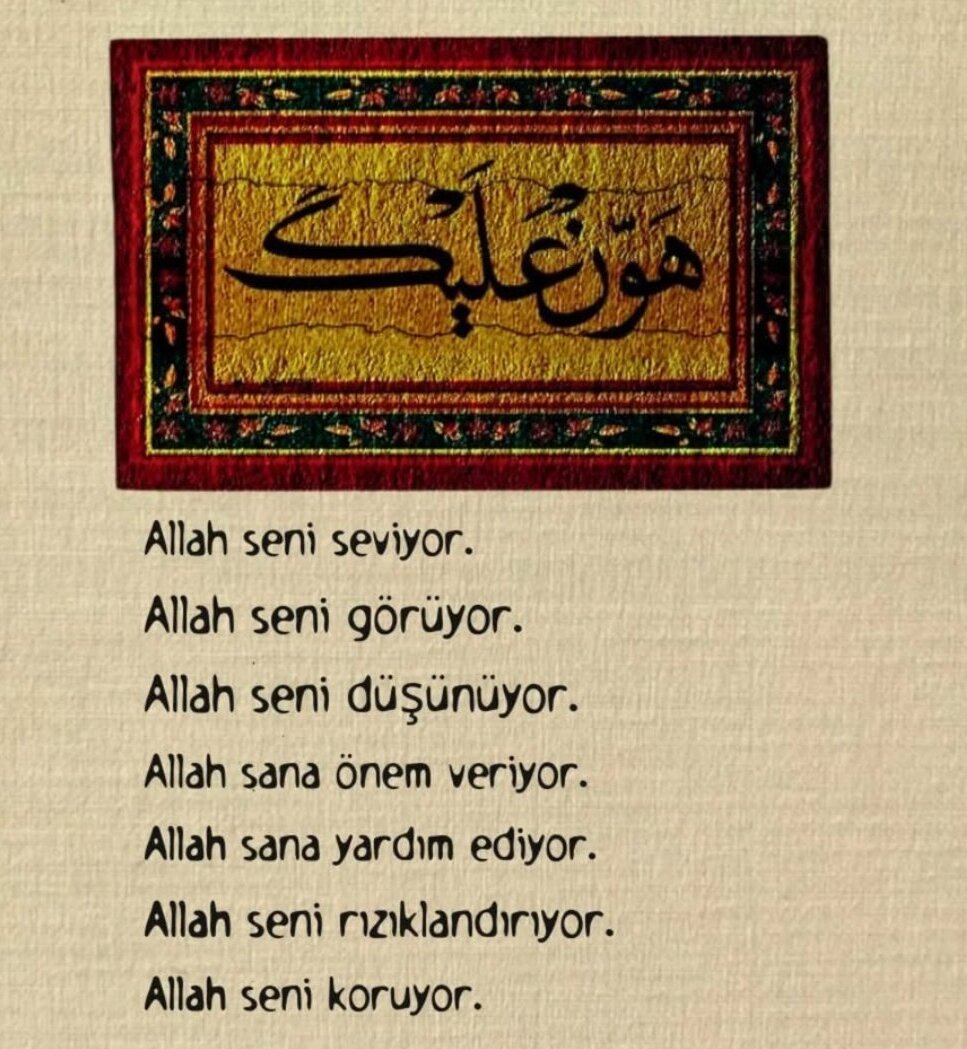 هَوِّنْ عَلَيْكَ
Allah seni seviyor.
Allah seni görüyor.
Allah seni düşünüyor.
Allah sana önem veriyor.
Allah sana yardım ediyor.
Allah seni rızıklandırıyor.
Allah seni koruyor.